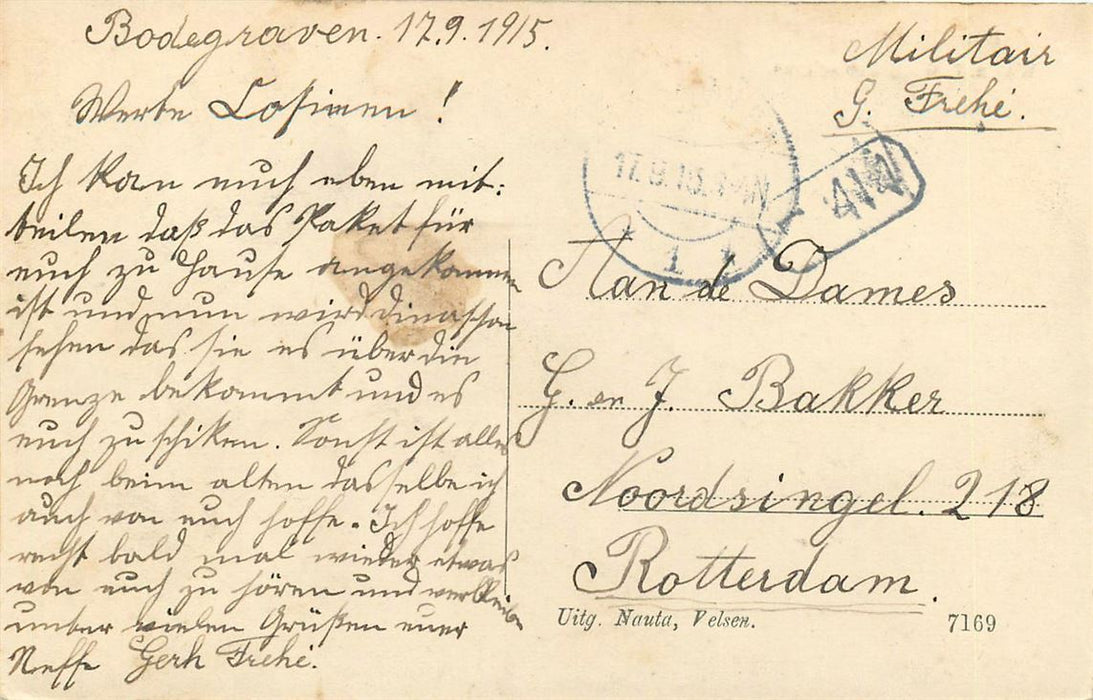 Bodegraven. 17.9.1915.
Werte Cosinen!
Ich kan euch eben mit:
teilen daß das Paket für
euch zu Hause angekommen
ist und nun wird Dina schon
sehen das sie es über die
Grenze bekommt und es
euch zu schiken. Sonst ist alles
noch beim alten dasselbe ich
auch von euch hoffe. Ich hoffe
recht bald mal wieder etwas
von euch zu hören und verbleibe
unter vielen Grüßen euer
Neffe Gerh Frehé.
Militair
G. Frehé.
17.9.15. N
1
Aan de Dames
G. en J. Bakker
Noordsingel. 218
Rotterdam.
Uitg. Nauta, Velsen. 7169